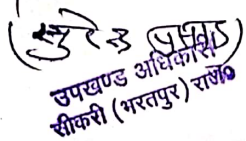 (सुरेश प्रसाद)
उपखण्ड अधिकारी
सीकरी (भरतपुर) राज०